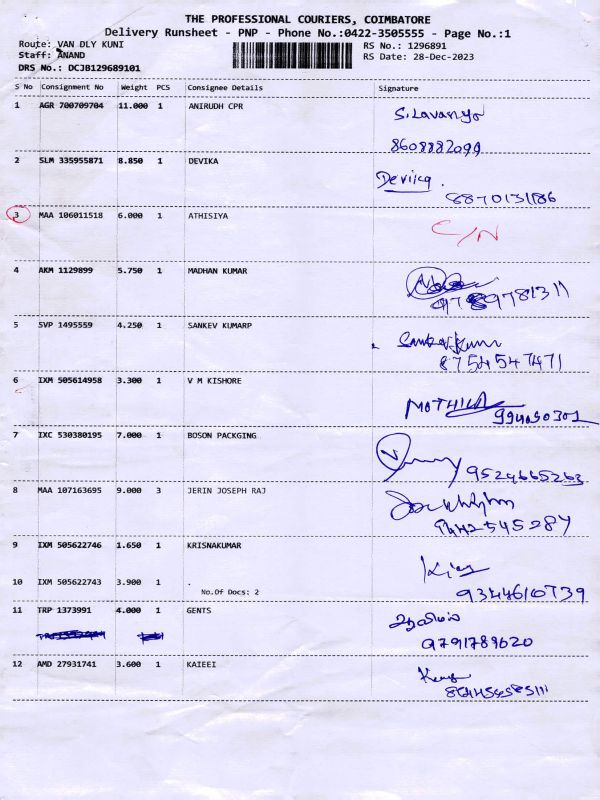 THE PROFESSIONAL COURIERS, COIMBATORE
Delivery Runsheet - PNP - Phone No.:0422-3505555 - Page No.:1
Route: VAN DLY KUNI
RS No.: 1296891
Staff: ANAND
RS Date: 28-Dec-2023
DRS No.: DCJB129689101
S No Consignment No Weight PCS Consignee Details Signature
1 AGR 700709704 11.000 1 ANIRUDH CPR
S.Lavanya
8608882099
2 SLM 335955871 8.850 1 DEVIKA
Devika.
8870131186
3 MAA 106011518 6.000 1 ATHISIYA
C/N
4 AKM 1129899 5.750 1 MADHAN KUMAR
5 SVP 1495559 4.250 1 SANKEV KUMARP
8754547471
6 IXM 505614958 3.300 1 V M KISHORE
7 IXC 530380195 7.000 1 BOSON PACKGING
9524665263
8 MAA 107163695 9.000 3 JERIN JOSEPH RAJ
9442545284
9 IXM 505622746 1.650 1 KRISNAKUMAR
10 IXM 505622743 3.900 1 .
No.Of Docs: 2
9344610739
11 TRP 1373991 4.000 1 GENTS
9791789620
12 AMD 27931741 3.600 1 KAIEEI